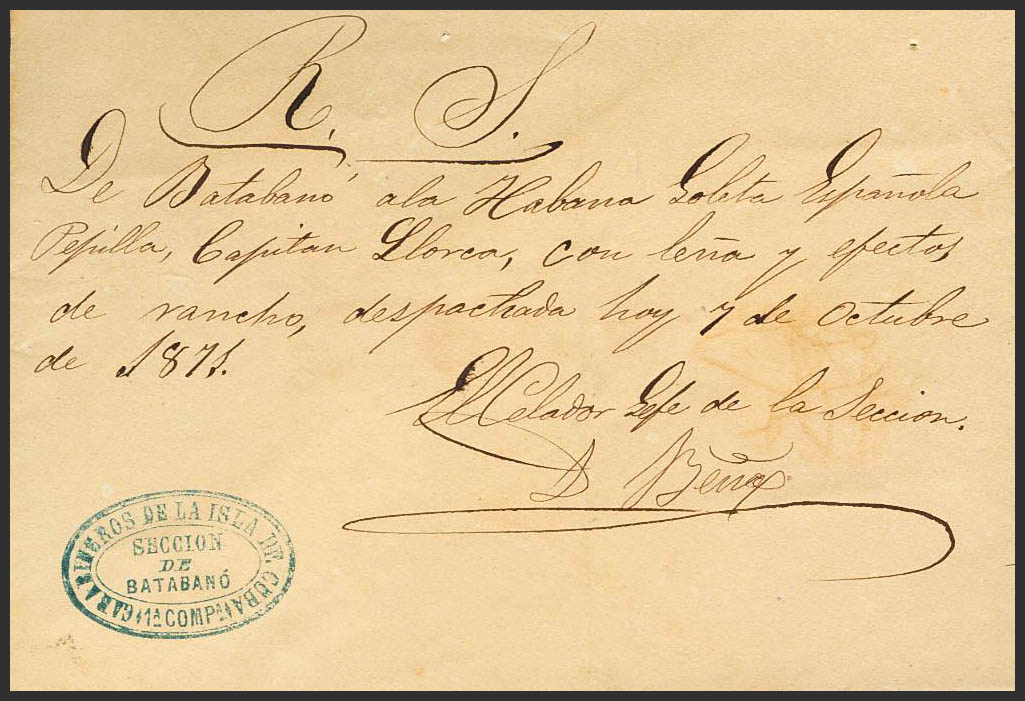 R. S.
De Batabanó ala Habana Goleta Española
Pepilla, Capitan Llorca, con leña y efectos
de rancho, despachada hoy 7 de Octubre
de 1871.
Gefe de la Seccion.
CARABINEROS DE LA ISLA DE CUBA
SECCION
DE
BATABANÓ
1ª COMPª